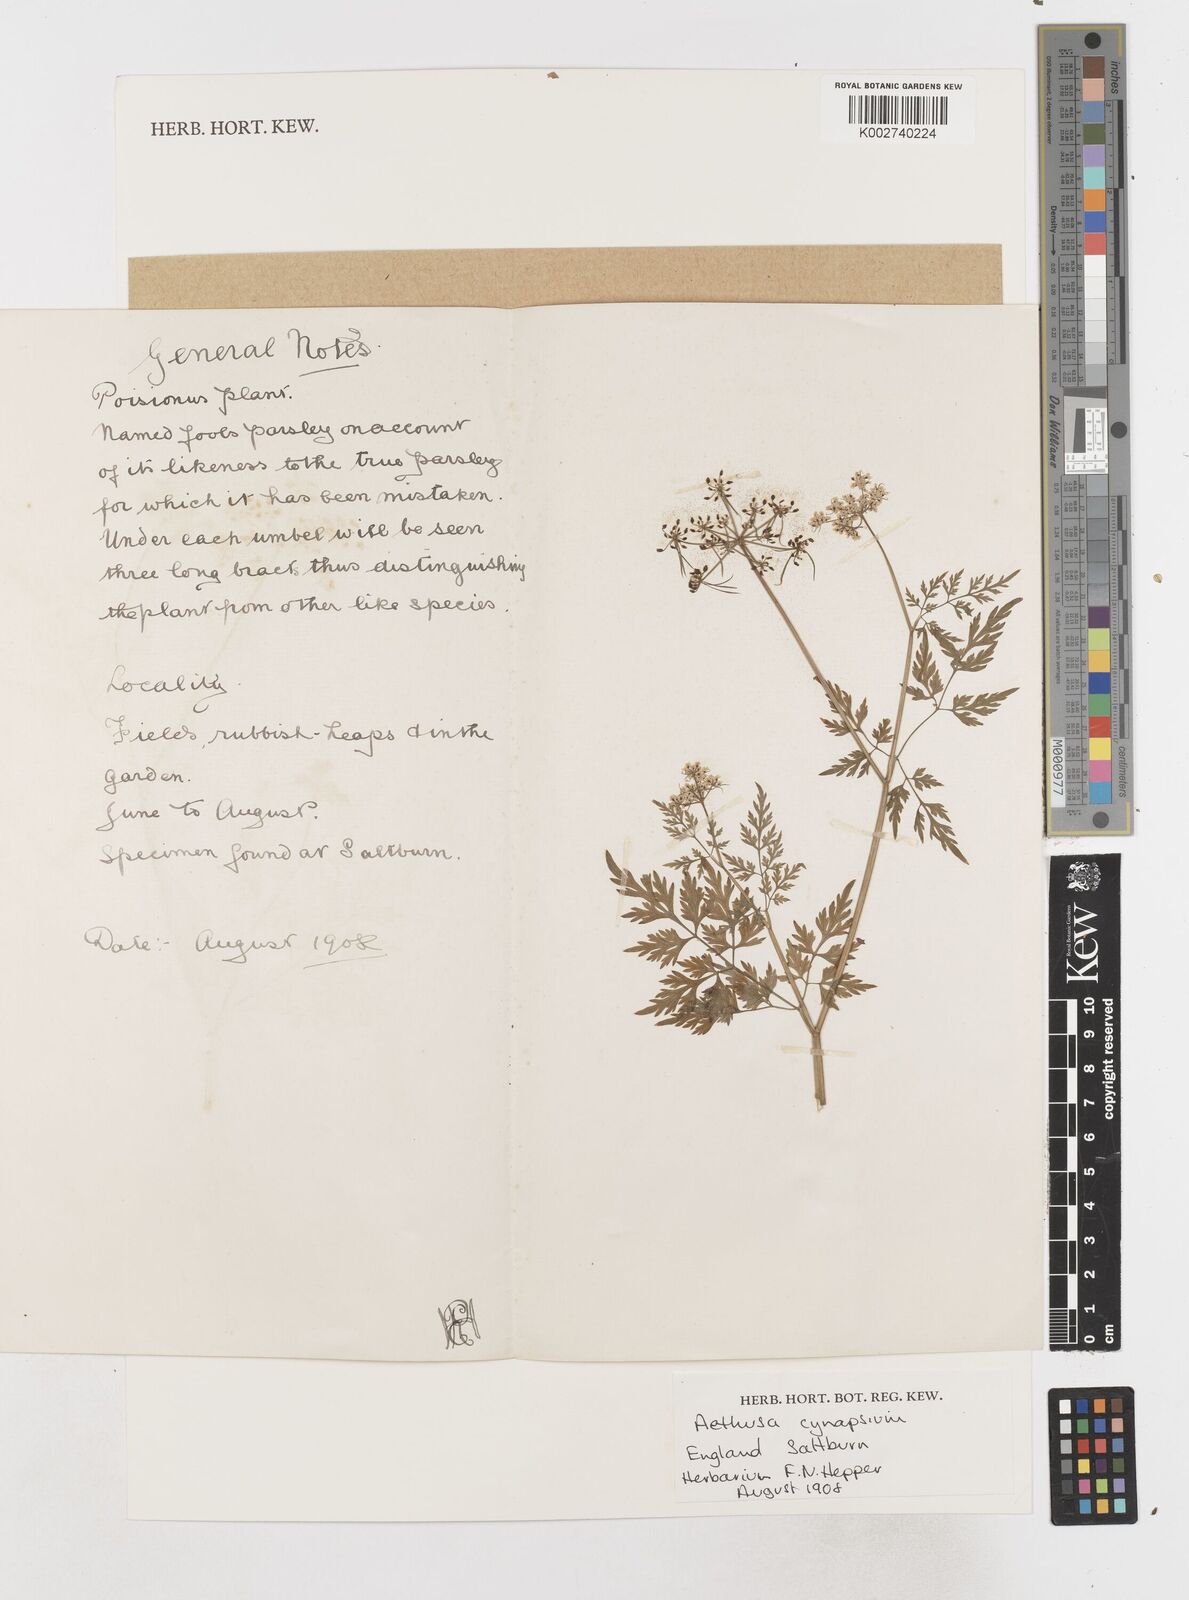 HERB. HORT. KEW.
ROYAL BOTANIC GARDENS KEW
K002740224
General Notes.
Poisionus plant.
Named fools parsley on account
of its likeness to the true parsley
for which it has been mistaken.
Under each umbel will be seen
three long bracts thus distinguishing
the plant from other like species.
Locality.
Fields, rubbish-heaps & in the
garden.
June to August.
Specimen found at Saltburn.
Date:- August 1908
HERB. HORT. BOT. REG. KEW.
Aethusa cynapsium
England Saltburn
Herbarium F.N. Hepper
August 1908
inches
centimeters
Density
Don Williams
M0000977
Kew
Royal Botanic Gardens
copyright reserved
0 1 2 3 4 5 6 7 8 9 10
cm